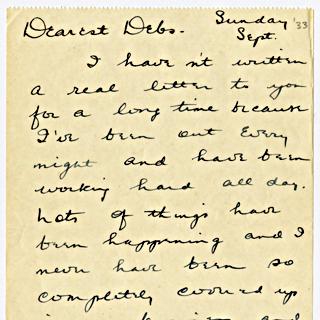 Dearest Debs. Sunday '33
Sept.
I have n't written
a real letter to you
for a long time because
I've been out every
night and have been
working hard all day.
Lots of things have
been happening and I
never have been so
completely covered up
and